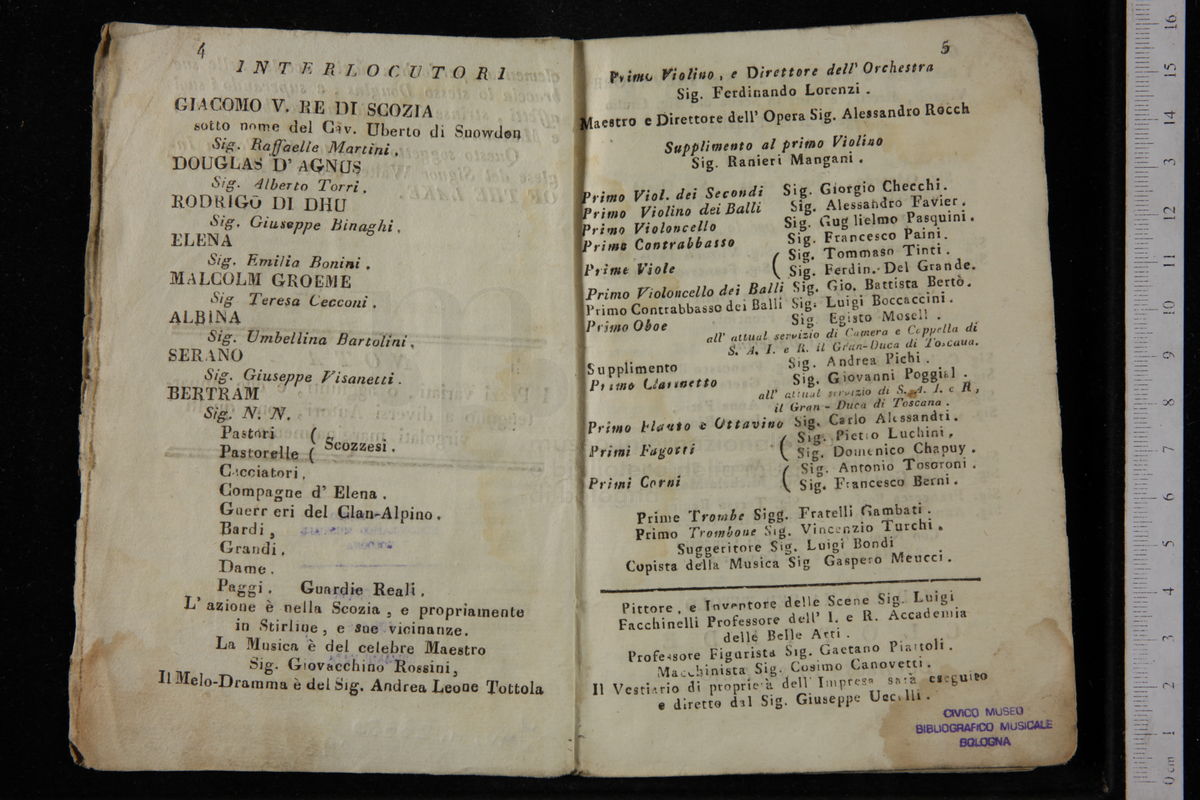 4
INTERLOCUTORI
GIACOMO V. RE DI SCOZIA
sotto nome del Cav. Uberto di Snowdon
Sig. Raffaelle Martini.
DOUGLAS D' AGNUS
Sig. Alberto Torri.
RODRIGO DI DHU
Sig. Giuseppe Binaghi.
ELENA
Sig. Emilia Bonini.
MALCOLM GROEME
Sig Teresa Cecconi.
ALBINA
Sig. Umbellina Bartolini,
SERANO
Sig. Giuseppe Visanetti.
BERTRAM
Sig. N. N.
Pastori (
Scozzesi.
Pastorelle (
Cacciatori.
Compagne d' Elena.
Guerr eri del Clan-Alpino.
Bardi,
Grandi.
Dame.
Paggi. Guardie Reali.
L' azione è nella Scozia, e propriamente
in Stirling, e sue vicinanze.
La Musica è del celebre Maestro
Sig. Giovacchino Rossini,
Il Melo-Dramma è del Sig. Andrea Leone Tottola
5
Primo Violino, e Direttore dell' Orchestra
Sig. Ferdinando Lorenzi.
Maestro e Direttore dell' Opera Sig. Alessandro Rocch
Supplimento al primo Violino
Sig. Ranieri Mangani.
Primo Viol. dei Secondi Sig. Giorgio Checchi.
Primo Violino dei Balli Sig. Alessandro Favier.
Primo Violoncello Sig. Gug lielmo Pasquini.
Primo Contrabbasso Sig. Francesco Paini.
( Sig. Tommaso Tinti.
Prime Viole
( Sig. Ferdin. Del Grande.
Primo Violoncello dei Balli Sig. Gio. Battista Bertò.
Primo Contrabbasso dei Balli Sig. Luigi Boccaccini.
Primo Oboe Sig Egisto Mosell.
all' attual servizio di Camera e Cappella di
S. A. I. e R. il Gran-Duca di Toscana.
Supplimento Sig. Andrea Pichi.
Primo Clarinetto Sig. Giovanni Poggial.
all' attual servizio di S. A. I. e R,
il Gran-Duca di Toscana.
Primo Flauto e Ottavino Sig. Carlo Alessandri.
( Sig. Pietro Luchini,
Primi Fagotti
( Sig. Domenico Chapuy.
( Sig. Antonio Tosoroni.
Primi Corni
( Sig. Francesco Berni.
Prime Trombe Sigg. Fratelli Gambati.
Primo Trombone Sig. Vincenzio Turchi.
Suggeritore Sig. Luigi Bondi
Copista della Musica Sig Gaspero Meucci.
Pittore, e Inventore delle Scene Sig. Luigi
Facchinelli Professore dell' I. e R. Accademia
delle Belle Arti.
Professore Figurista Sig. Gaetano Piattoli.
Macchinista Sig. Cosimo Canovetti.
Il Vestiario di proprietà dell' Impresa sarà eseguito
e diretto dal Sig. Giuseppe Uccelli.
CIVICO MUSEO
BIBLIOGRAFICO MUSICALE
BOLOGNA
16
15
14
13
12
11
10
9
8
7
6
5
4
3
2
1
0 cm